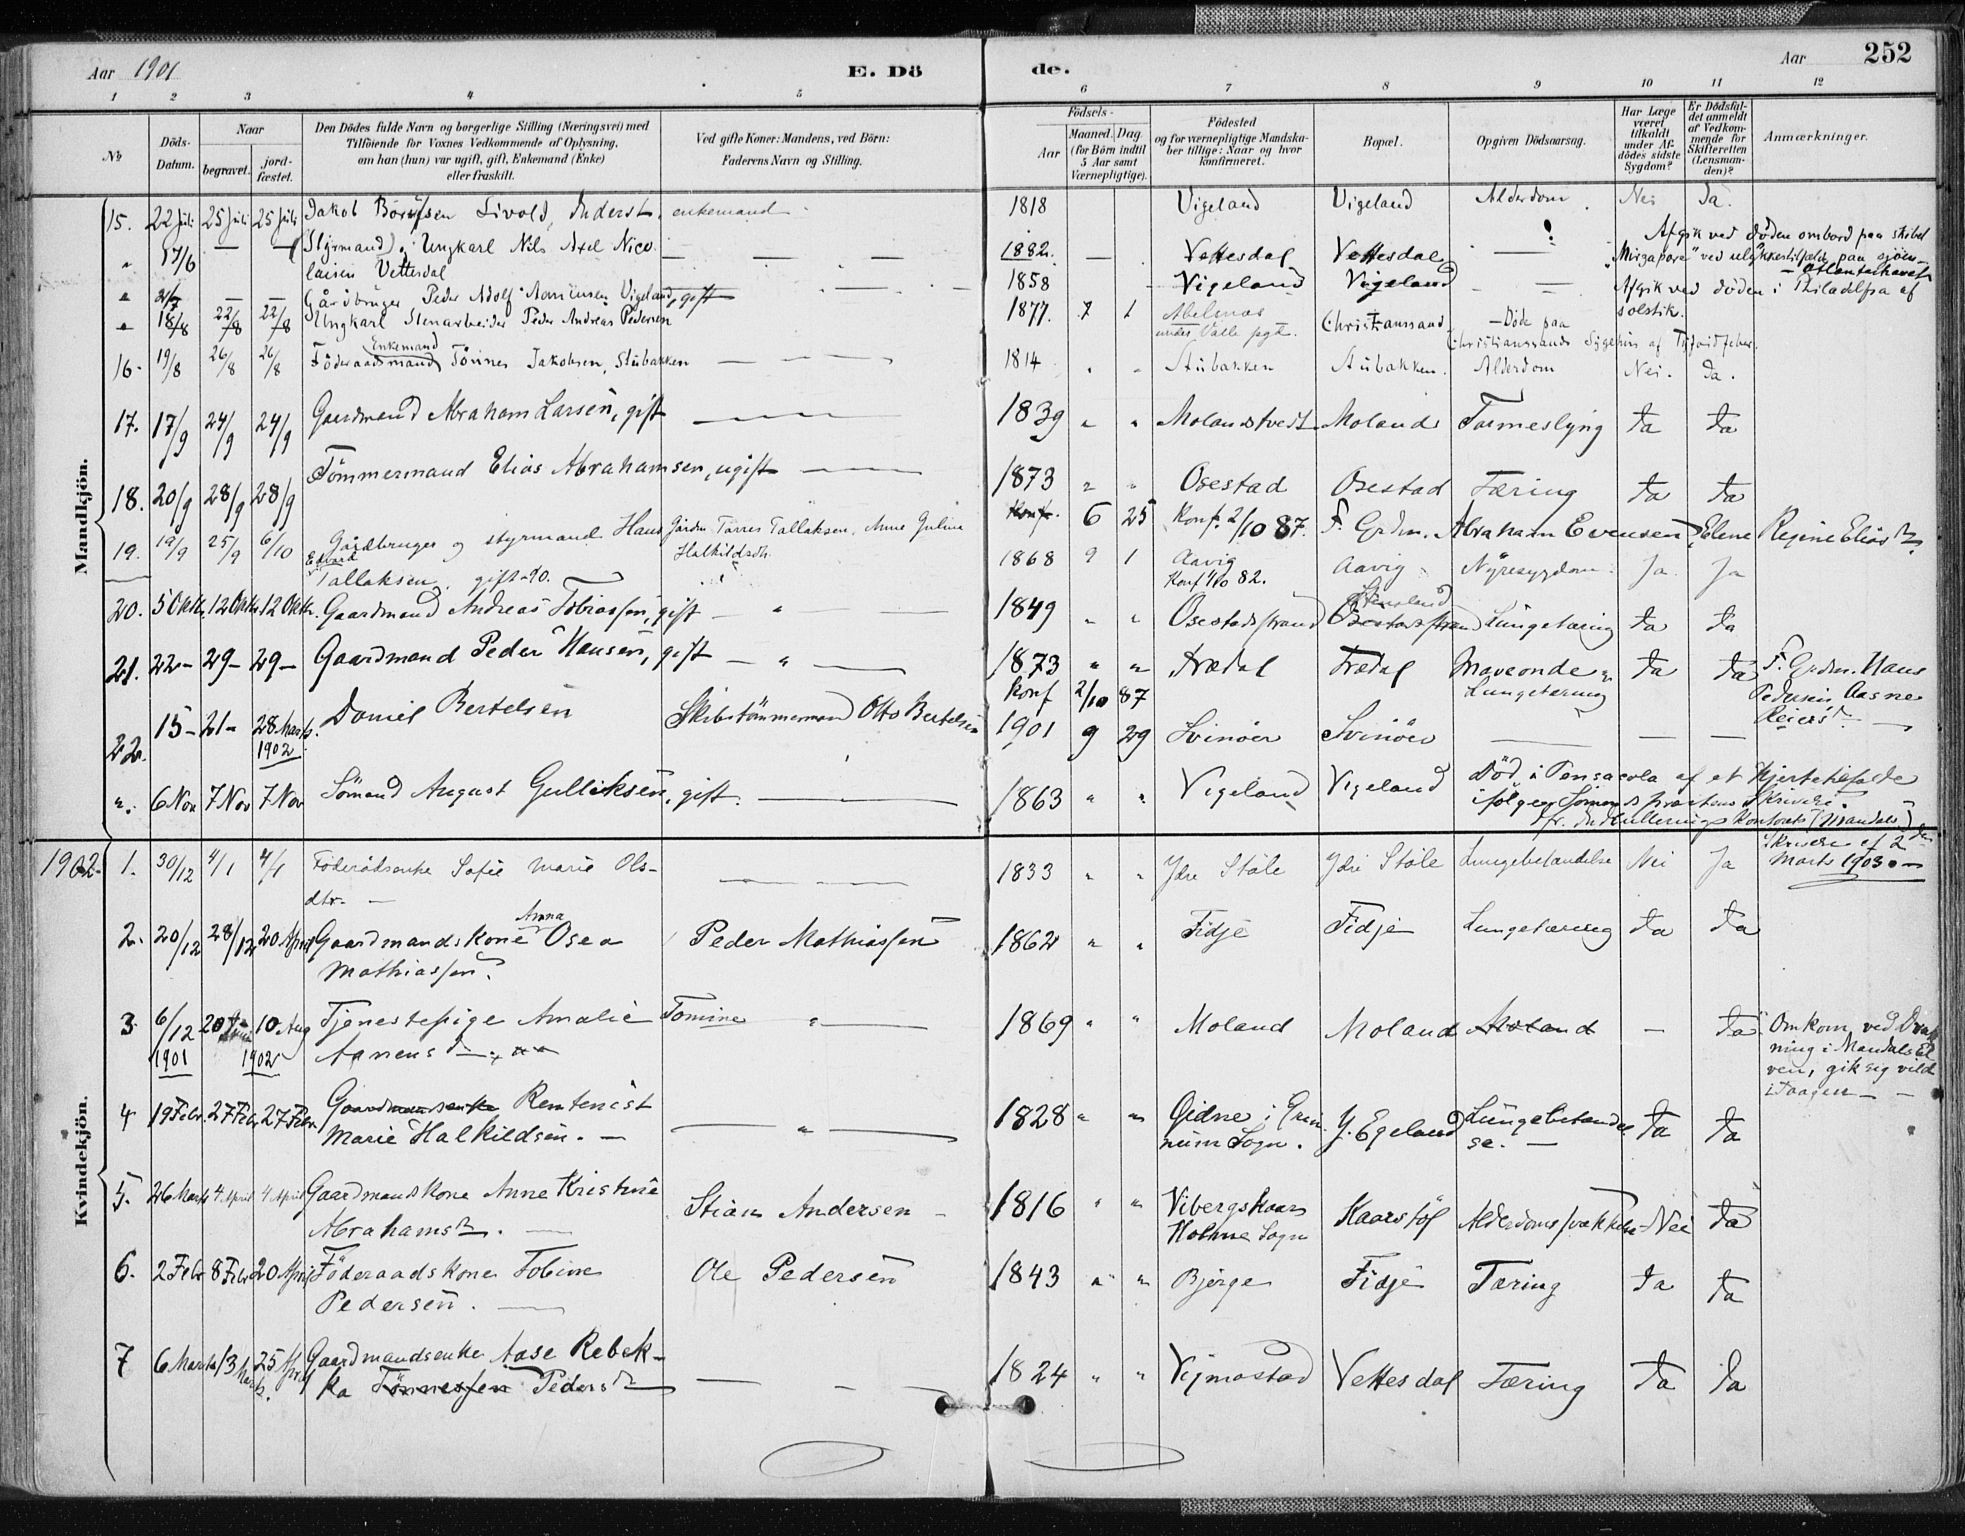 Aar 1901
E. Dö
de.
Aar 252
1 2 3 4 5 6 7 8 9 10 11 12
No
Döds-Datum.
Naar
begravet.
jord-fæstet.
Den Dödes fulde Navn og borgerlige Stilling (Næringsvei) med
Tilföiende for Voxnes Vedkommende af Oplysning,
om han (hun) var ugift, gift, Enkemand (Enke)
eller fraskilt.
Ved gifte Koner: Mandens, ved Börn:
Faderens Navn og Stilling.
Födsels-
Aar
Maaned. Dag.
(for Börn indtil
5 Aar samt
Værnepligtige).
Födested
og for værnepligtige Mandska-
ber tillige: Naar og hvor
konfirmeret.
Bopæl.
Opgiven Dödsaarsag.
Har Læge
været
tilkaldt
under Af-
dödes sidste
Sygdom?
Er Dödsfal-
det anmeldt
af Vedkom-
mende for
Skifteretten
(Lensman-
den)?
Anmærkninger.
Mandkjön.
15. 22 Juli 25 Juli 25 Juli Jakob Livold, Inderst, enkemand 1818 Vigeland Vigeland Alderdom Nei Ja.
" 17/6 — — (Styrmand) Ungkarl Nils Axel Nico- — — — 1882 — Vettesdal Vettesdal — Afgik ved døden ombord paa skibet
laisen Vettesdal "Mirzapore" ved ulykkestilfælde paa sjøen
— Atlanterhavet
" 2/7 — — Gårdbruger Peder Adolf Vigeland, gift — 1858 - Vigeland Vigeland — Afgik ved døden i Philadelfia af
solstik.
" 18/8 22/8 22/8 Ungkarl Stenarbeider Peder Andreas Pedersen 1877. 7 1 Abelnes Christianssand — Døde paa
under Valle pgd. Christianssands Sygehus af Tyfoidfeber.
16. 19/8 26/8 26/8 Enkemand
Föderaadsmand Tönnes Jakobsen, Stubakken — — 1814 " " Stubakken Stubakken. Alderdom Nei. Ja.
17. 17/9 24/9 24/9 Gaardmand Abraham Larsen, gift — — 1839 " " Molandstvedt Moland Tarmeslyng Ja Ja
18. 20/9 28/9 28/9 Tömmermand Elias Abrahamsen, ugift — 1873 " " Osestad Osestad Tæring Ja Ja
Konf. 6 25 Konf. 2/10 87. F. Grdm. Abraham Evensen, Elene Regine Eliasdr.
19. 19/9 25/9 6/10 Gårdbruger og styrmand Hans Gårdm. Tarres Tallaksen, Anne Guline 1868 9 1 Aavig Aavig Nyresygdom Ja Ja
Edvard
Tallaksen, gift. Halkildsdtr. Konf 82.
20. 5 Oktb. 12 Oktb. 12 Oktb. Gaardmand Andreas Tobiassen, gift — " — 1849 " " Osestadstrand Lungetæring Ja Ja
21. 22- 29- 29- Gaardmand Peder Hansen, gift — " — 1873 " " Trædal Trædal Maveonde Ja Ja F. Grdm. Hans
Konf 2/10 87 Lungetæring Pedersen, Aasne
Reiersdr —
22. 15- 21- 28 Marts 1902 Daniel Bertelsen Skibstömmermand Otto Bertelsen 1901 9 29 Svinöer Svinöer — — —
". 6 Nov 7 Nov 7 Nov Sömand August Gulliksen, gift. — 1863 " " Vigeland Vigeland Död i Pensacola af et Hjertetilfælde
ifölge Sömandsprestens Skrivelse.
fr. Indrulleringskontoret (Mandal)
Skrivelse af 2den
Marts 1903 —
Kvindekjön.
1902. 1. 30/12 4/1 4/1 Föderådsenke Sofie Marie Ols- — — 1833 " " Ydre Støle Ydre Støle Lungebetændelse Nei Ja
dtr. —
2. 20/12 28/12 20 April Gaardmandskone Anna Osea Peder Mathiassen 1862 " " Fidje Fidje Lungetæring Ja Ja
Mathiassen.
3 6/12 1901 10 Aug 1902 Tjenestepige Amalie Tomine " — 1869 " " Moland Moland — Ja Omkom ved Druk-
Aanensdr ning i Mandalsel-
ven, gik sig vild
i Taagen — —
4 19 Febr. 27 Febr. 27 Febr. Gaardmandsenke Rentenist — " — 1828 " " Gidne i Grin- Y. Egeland Lungebetændel- Ja Ja
Marie Halkildsen. — num Sogn. se. —
5. 26 Marts 4 April 4 April Gaardmandskone Anne Kristine Stian Andersen 1816 " " Vibergskaar Kaarstöl Alderdomssvækkelse Nei Ja
Abrahamsdr. — Holme Sogn
6. 2 Febr 8 Febr 20 April Föderaadskone Tobine Ole Pedersen 1843 " " Bjerge Fidje Tæring Ja Ja
Pedersen. —
7 6 Marts 13 Marts. 25 April Gaardmandsenke Aase Rebek- — 1824 " " Vejmostad Vettesdal Tæring Ja Ja
ka Tönnessen Pedersdr — — —